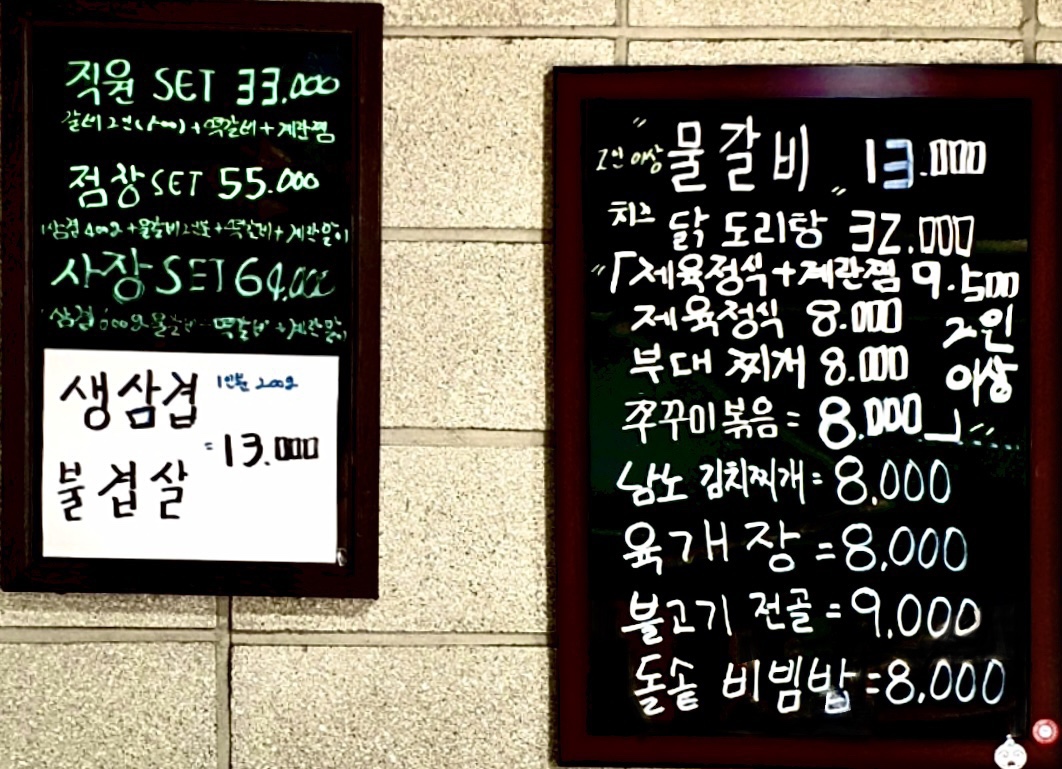 직원 SET 33.000
갈비 2인 + 떡갈비 + 계란찜
점장 SET 55.000
삼겹 400g + 물갈비 2인분 + 떡갈비 + 계란말이
사장 SET 64.000
삼겹 600g 물갈비 떡갈비 + 계란말이
생삼겹 1인분 200g
= 13.000
불겹살
2인 이상 "물갈비" 13.000
치즈 닭도리탕 32.000
"「제육정식+계란찜 9.500
제육정식 8.000 2인
부대찌개 8.000 이상
쭈꾸미볶음= 8.000 」"
남노 김치찌개= 8,000
육개장 =8,000
불고기 전골=9,000
돌솥 비빔밥=8,000